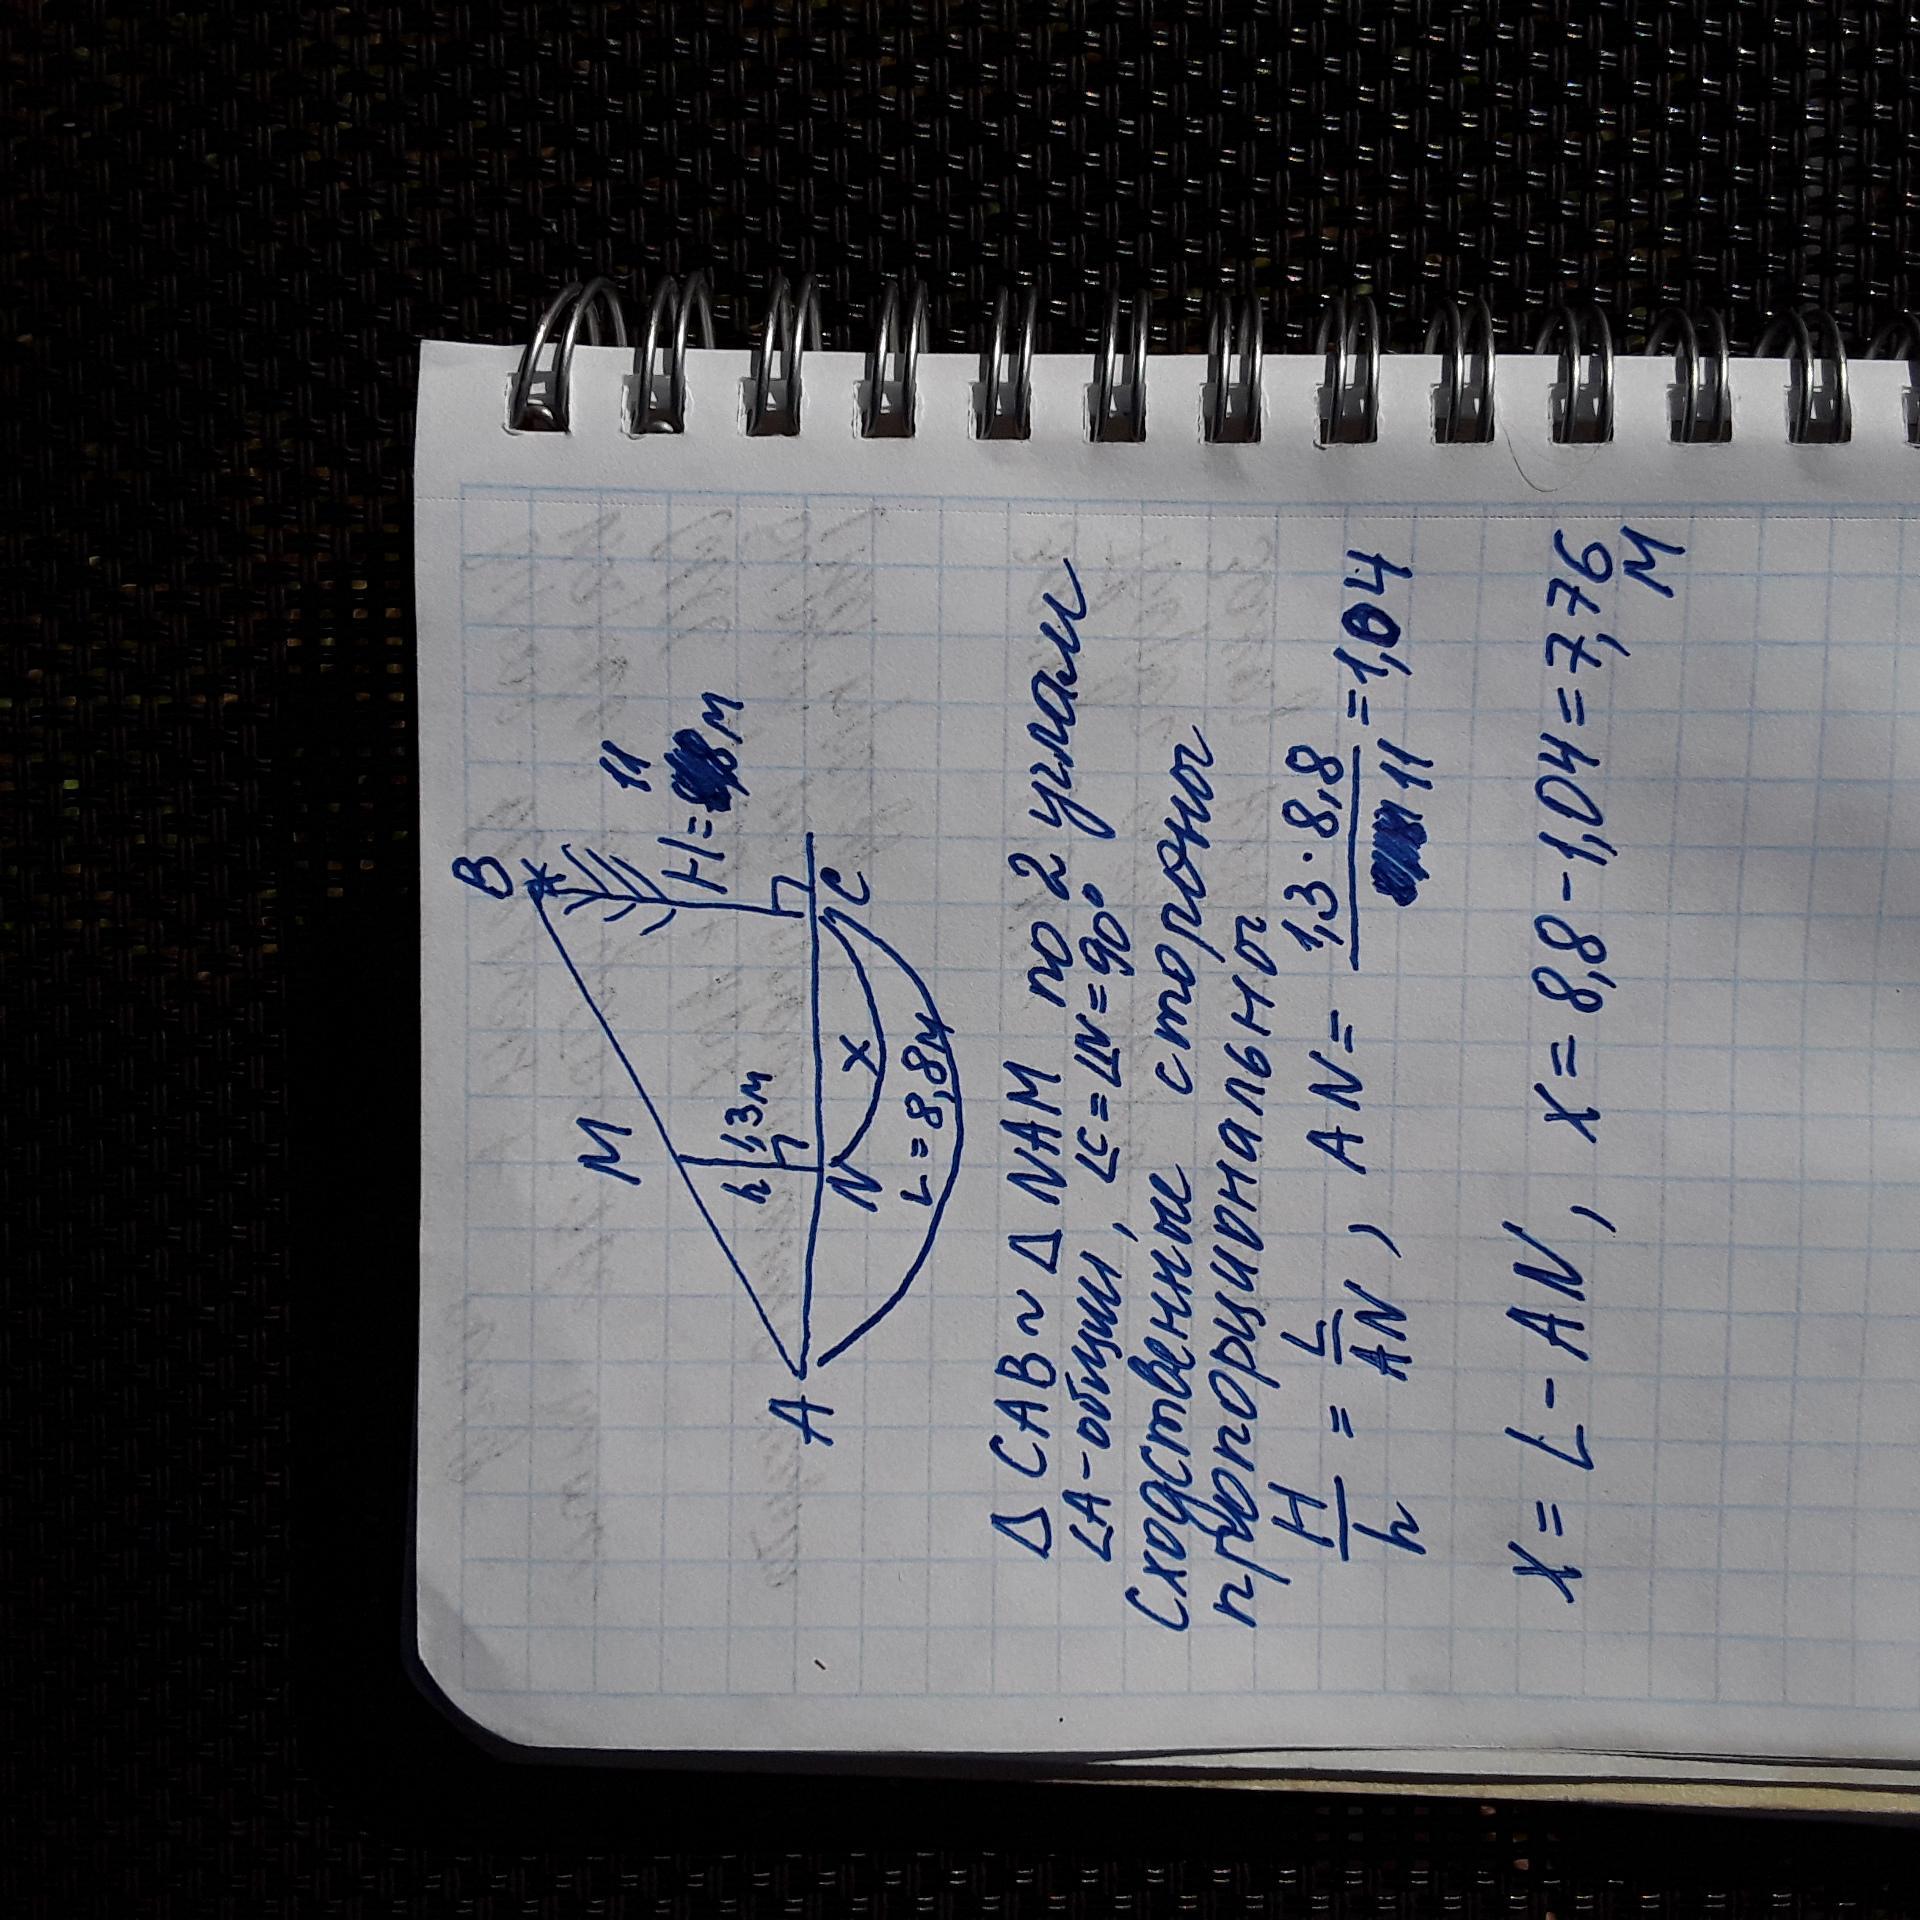 B
11
H= м
M
h 1,3м
A
N
C
x
L = 8,8м
Δ CAB ~ Δ NAM по 2 углам
∠A - общий, ∠C = ∠N = 90°
Сходственные стороны
пропорциональны
H/h = L/AN, AN = 1,3 · 8,8/11 = 1,04
x = L - AN, x = 8,8 - 1,04 = 7,76
м